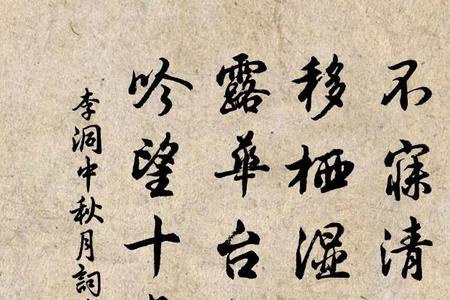 不寐清
移栖湿
露華台
吟望十
李洞中秋月詞